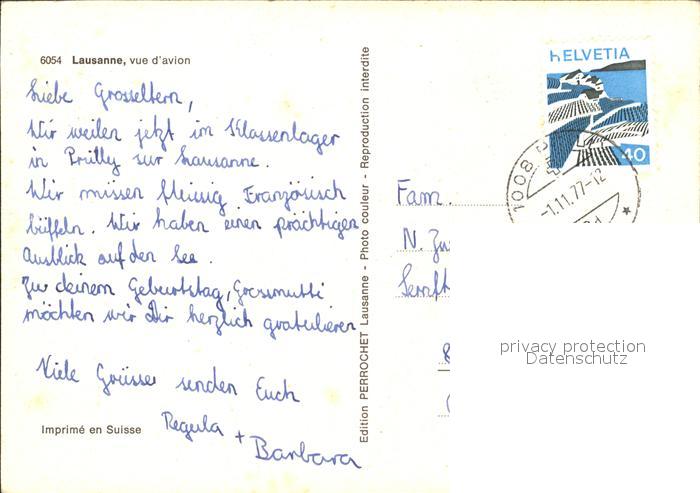 6054 Lausanne, vue d'avion
Liebe Grosseltern,
Wir weilen jetzt im Klassenlager
in Prilly sur Lausanne.
Wir müssen fleissig Französisch
büffeln. Wir haben einen prächtigen
Ausblick auf den See.
Zu deinem Geburtstag, Grossmutti
möchten wir Dir herzlich gratulieren
Viele Grüsse senden Euch
Regula + Barbara
Imprimé en Suisse
Edition PERROCHET Lausanne - Photo couleur - Reproduction interdite
HELVETIA
40
1008
-1.11.77-12
Fam.
N. Zu
Sernft
8
privacy protection
Datenschutz